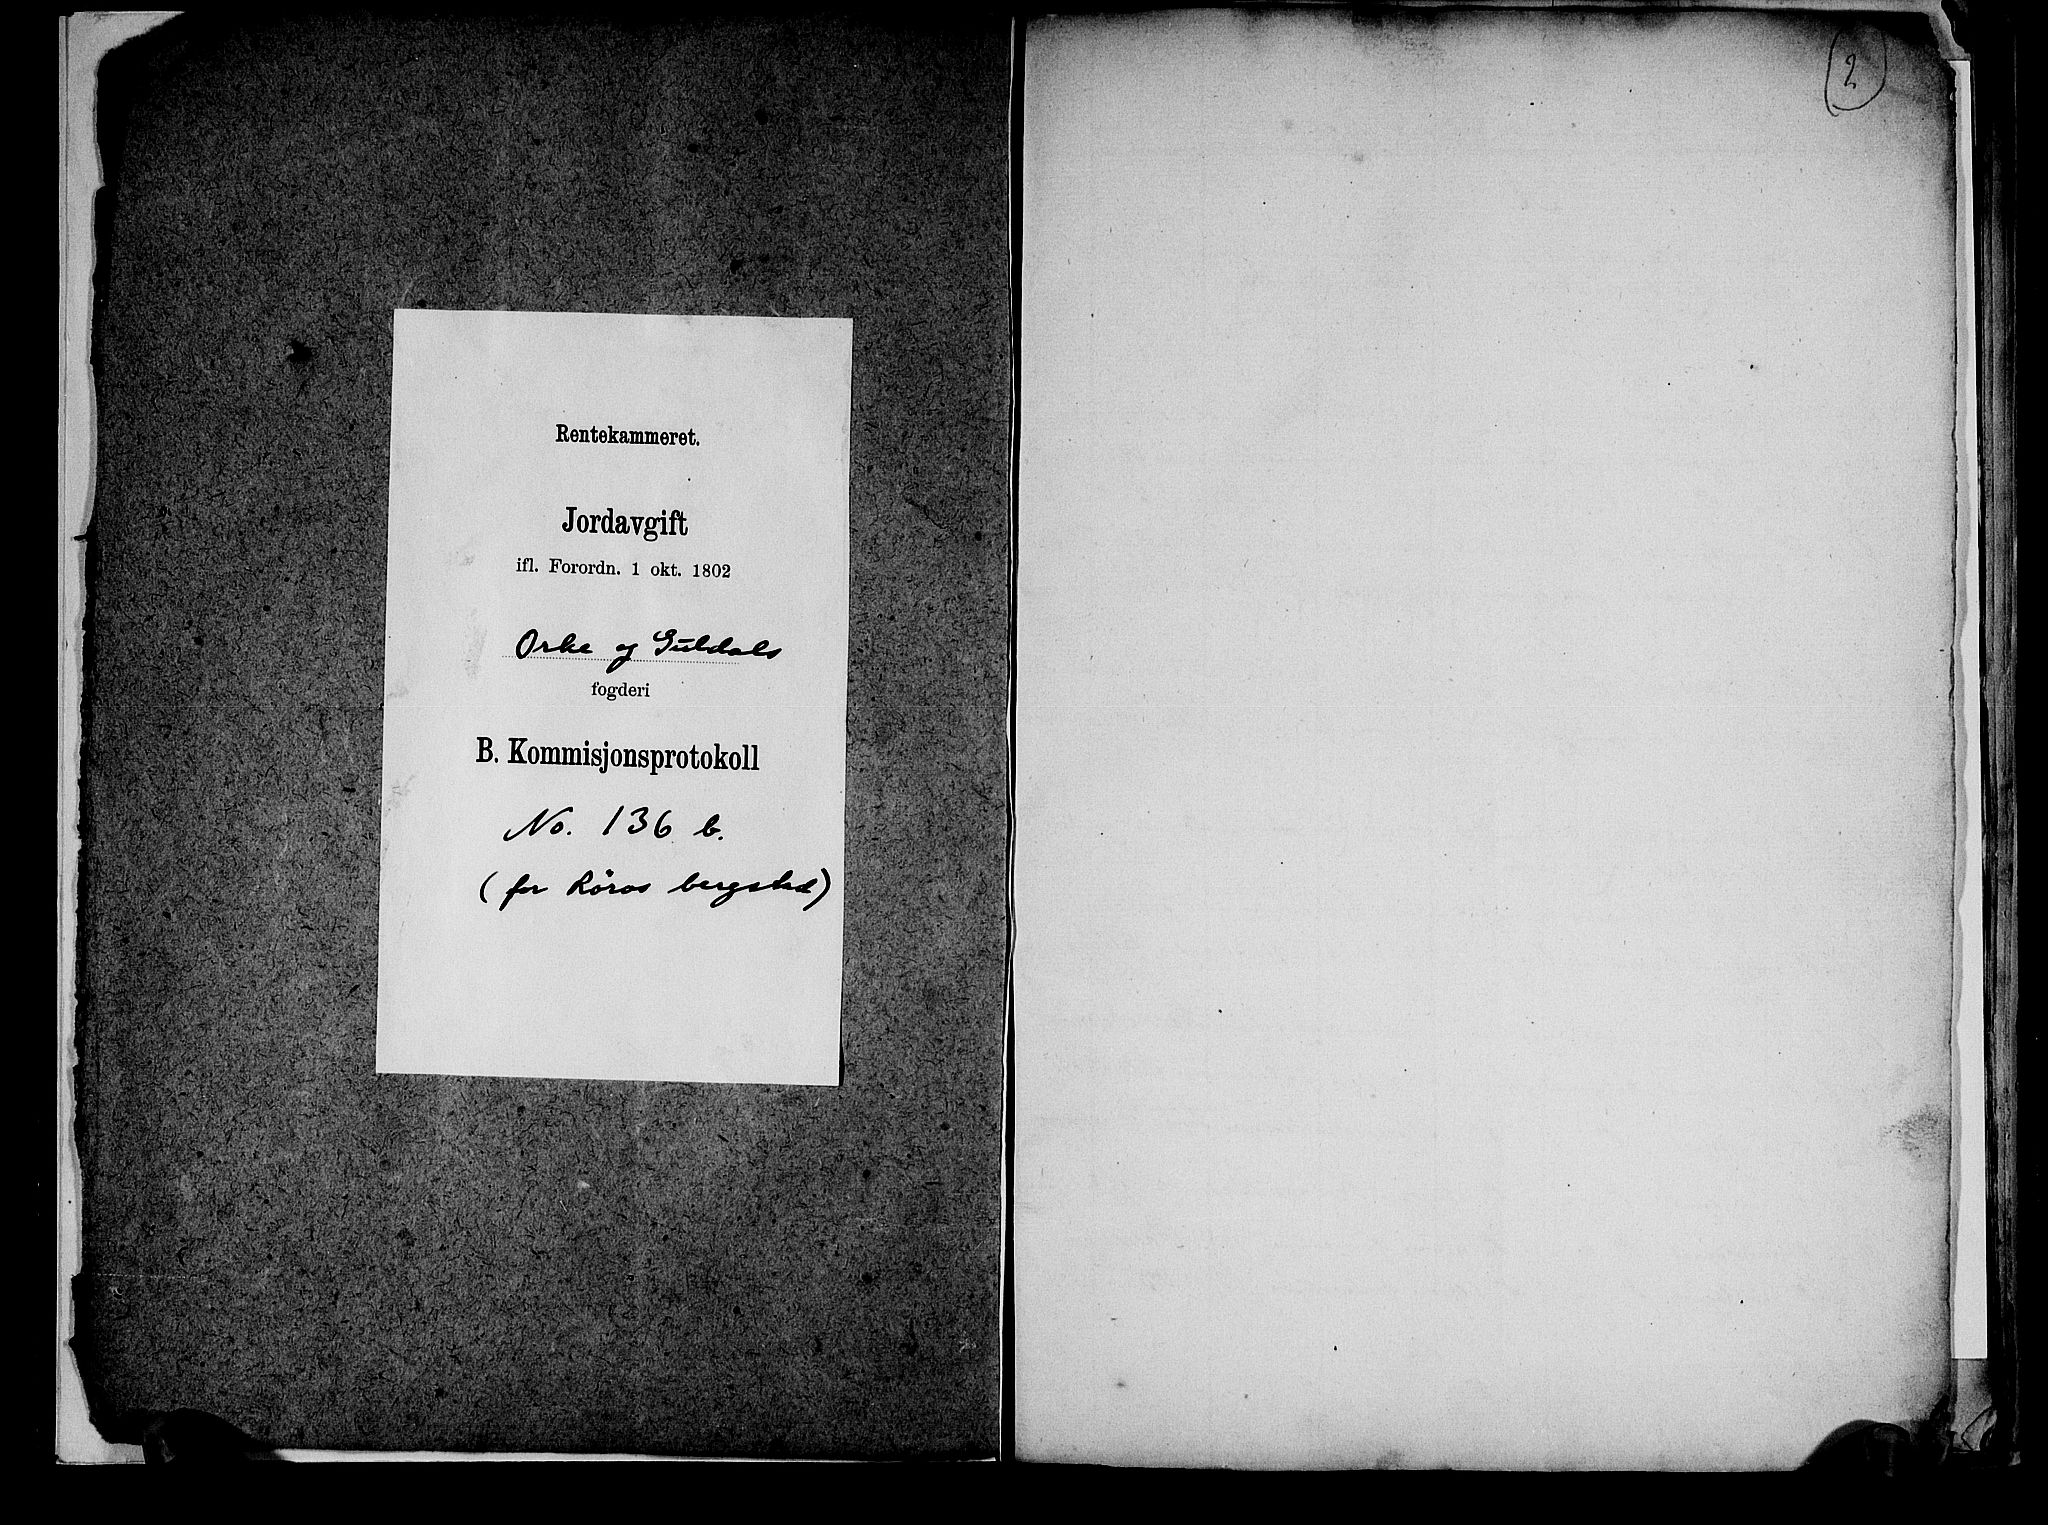 Rentekammeret.
Jordavgift
ifl. Forordn. 1 okt. 1802
Orke og Guldals
fogderi
B. Kommisjonsprotokoll
No. 136 b.
(for Røros bergsted)
2